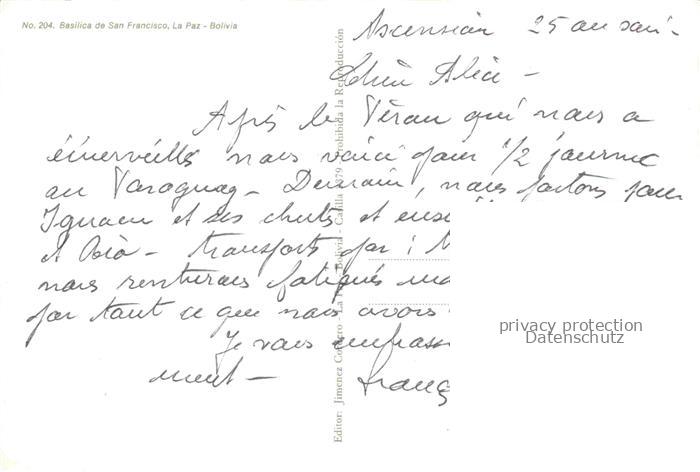 No. 204. Basilica de San Francisco, La Paz - Bolivia
Ascension 25 au soir -
Chère Alice -
Après le Pérou qui nous a
émerveillés nous voici pour 1/2 journée
au Paraguay - Demain, nous partons pour
Iguacu et ses chutes et ens
et Rio - transports par
nous rentrerons fatigués ma
par tout ce que nous avons
Je vous embrass
ment - Franç
Editor: Jimenez - La Paz - Bolivia - Casilla 1879 - Prohibida la Reproducción
privacy protection
Datenschutz